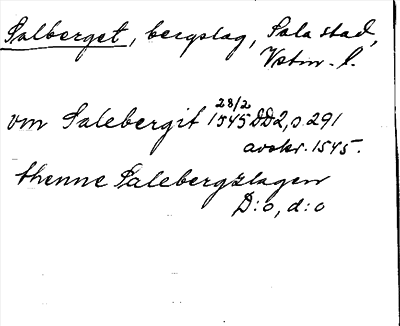 Salberget, bergslag, Sala stad,
Vstm. l.
28/2
om Salebergit 1545 DD2, s 291
avskr. 1545.
thenne Salebergzlagen
D:o, d:o